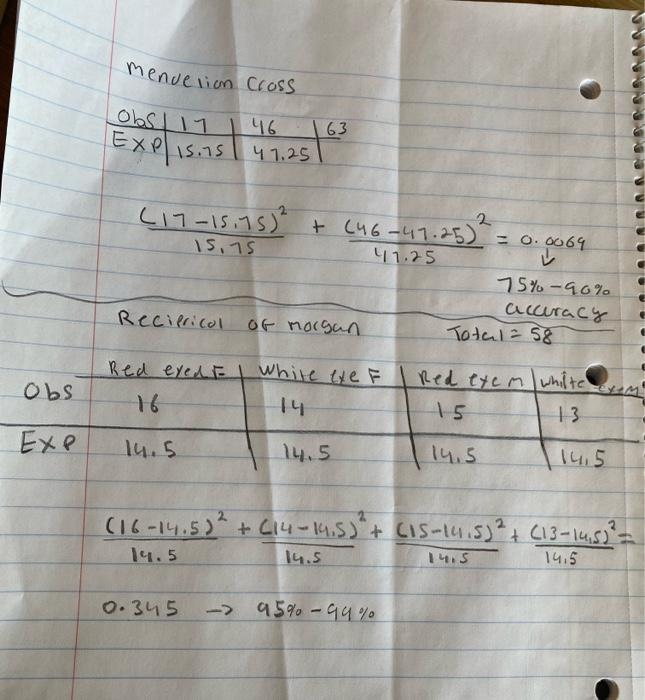 Mendelian Cross
Obs | 17 | 46 | 63
EXP | 15.75 | 47.25
(17-15.75)² / 15.75 + (46-47.25)² / 47.25 = 0.0069
↓
75%-90%
accuracy
Reciprical of morgan Total = 58
Red eyed F | White eye F | Red eye M | white eye M
Obs 16 | 14 | 15 | 13
EXP 14.5 | 14.5 | 14.5 | 14.5
(16-14.5)² / 14.5 + (14-14.5)² / 14.5 + (15-14.5)² / 14.5 + (13-14.5)² / 14.5 =
0.345 → 95%-99%